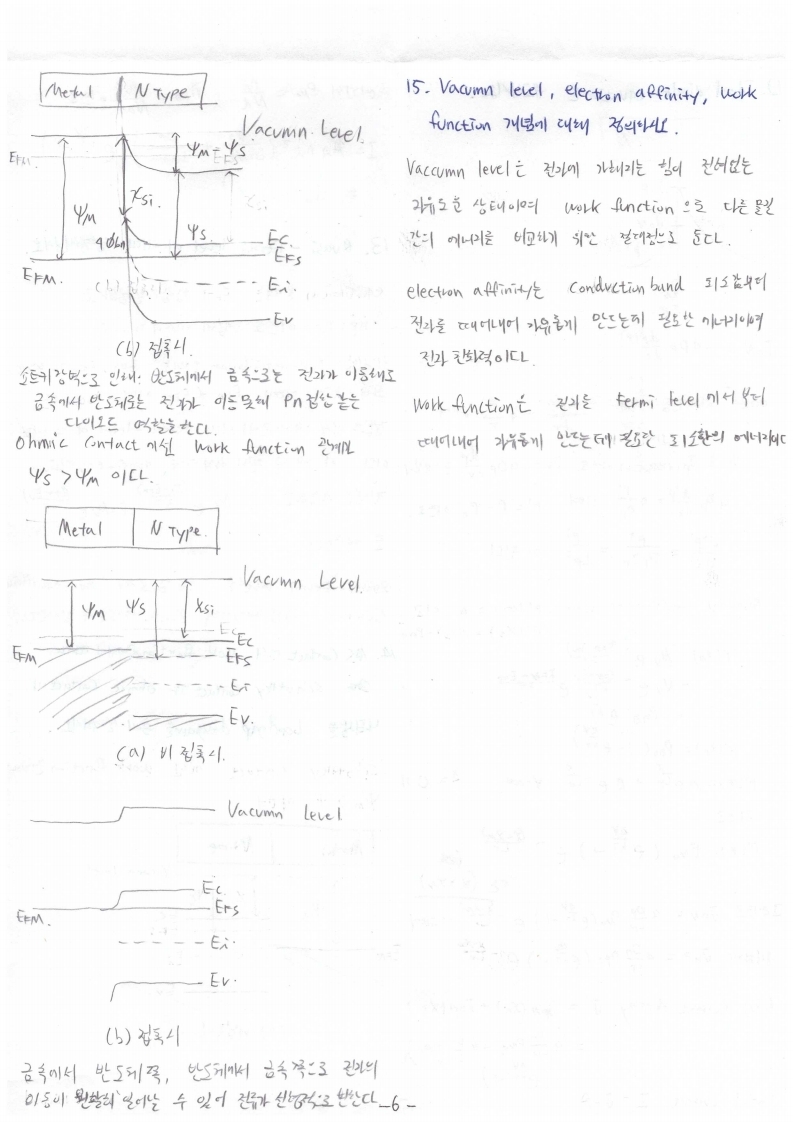 Metal N Type
Vacumn Level.
EFM
ΨM-ΨS
χSi
ΨM
ΨS
qΦBn
EC
EFS
EFM.
Ei.
EV
(b) 접촉시.
쇼트키장벽으로 인해. 반도체에서 금속으로는 전자가 이동해도
금속에서 반도체로는 전자가 이동못해 Pn접합 같은
다이오드 역할을 한다.
Ohmic Contact 에선 work function 관계가
ΨS > ΨM 이다.
Metal N Type.
Vacumn Level.
ΨM ΨS χSi
EC
EC
EFM
EFS
Ei
EV.
(a) 비접촉시.
Vacumn Level
EC
EFS
EFM.
Ei.
EV.
(b) 접촉시
금속에서 반도체쪽, 반도체에서 금속쪽으로 전자의
이동이 원활히 일어날 수 있어 전류가 선형적으로 변한다.
-6-
15. Vacumn level, electron affinity, work
function 개념에 대해 정의하시오.
Vaccumn level은 전자에 가해지는 힘이 전혀없는
자유로운 상태이며 work function 으로 다른 물질
간의 에너지를 비교하기 위한 절대점으로 둔다.
electron affinity는 Conduction band 최소값부터
전자를 떼어내어 자유롭게 만드는데 필요한 에너지이며
전자 친화력이다.
Work function은 전자를 fermi level 에서부터
떼어내어 자유롭게 만드는데 필요한 최소한의 에너지이다